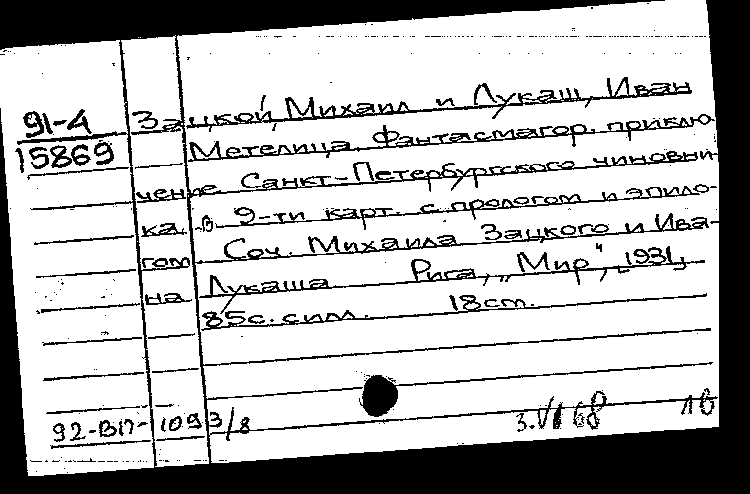 91-4
15869
Зацкой, Михаил и Лукаш, Иван
Метелица. Фантасмагор. приклю-
чение Санкт-Петербургского чиновни-
ка в 9-ти карт. с прологом и эпило-
гом. Соч. Михаила Зацкого и Ива-
на Лукаша Рига, „Мир“, [1931]
85 с. с илл. 18 см.
92-ВП-1093/8
3.VI 68